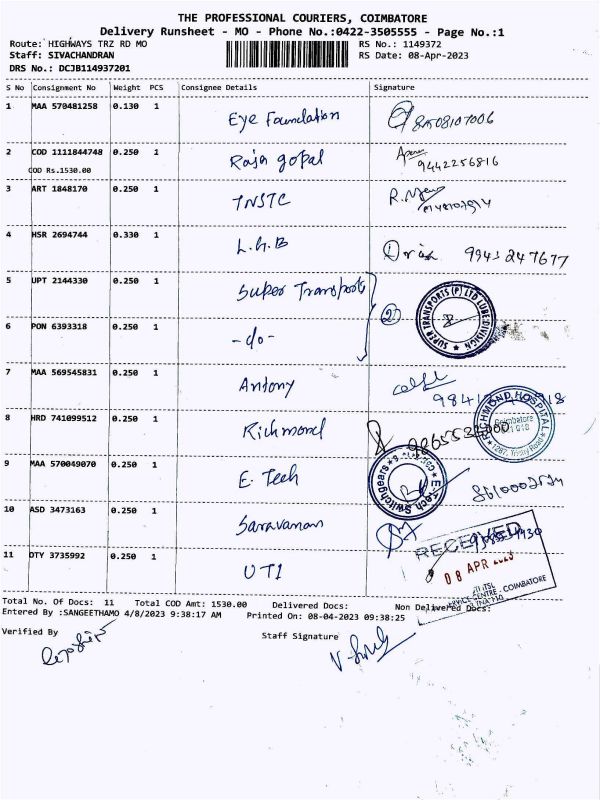 THE PROFESSIONAL COURIERS, COIMBATORE
Delivery Runsheet - MO - Phone No.:0422-3505555 - Page No.:1
Route: HIGHWAYS TRZ RD MO
RS No.: 1149372
Staff: SIVACHANDRAN
RS Date: 08-Apr-2023
DRS No.: DCJB114937201
S No Consignment No Weight PCS Consignee Details Signature
1 MAA 570481258 0.130 1 Eye Foundation 8508107006
2 COD 1111844748 0.250 1 Raja gopal 9442256816
COD Rs.1530.00
3 ART 1848170 0.250 1 TNSTC
4 HSR 2694744 0.330 1 L.G.B 9943247677
5 UPT 2144330 0.250 1 Super Transports (2)
SUPER TRANSPORTS (P) LTD LUBE:DIVISION
6 PON 6393318 0.250 1 -do-
7 MAA 569545831 0.250 1 Antony
8 HRD 741099512 0.250 1 Richmond
RICHMOND HOSPITAL
Coimbatore
1287, Trichy Road
9 MAA 570049070 0.250 1 E. Tech
E-Tech Switchgears
10 ASD 3473163 0.250 1 Saravanan
11 DTY 3735992 0.250 1 UTI
RECEIVED
08 APR 2023
UTIITSL
SERVICE CENTRE - COIMBATORE
Total No. Of Docs: 11 Total COD Amt: 1530.00 Delivered Docs: Non Delivered Docs:
Entered By :SANGEETHAMO 4/8/2023 9:38:17 AM Printed On: 08-04-2023 09:38:25
Verified By
Staff Signature